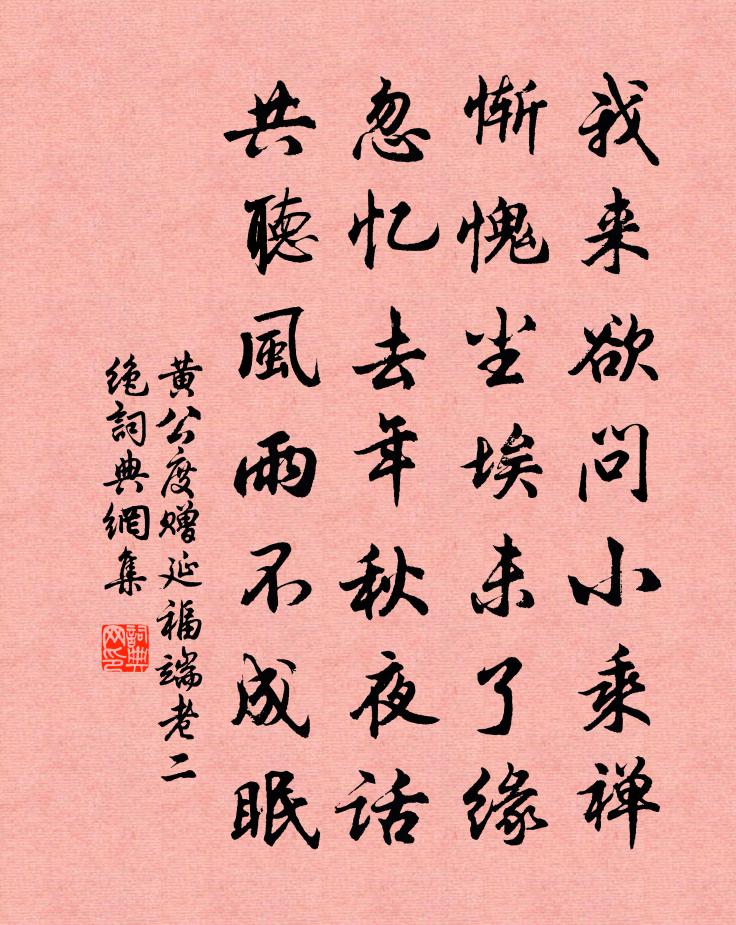 我来欲问小乘禅
惭愧尘埃未了缘
忽忆去年秋夜话
共聽風雨不成眠
黄公度赠延福端老二
绝詞典網集
詞典網印